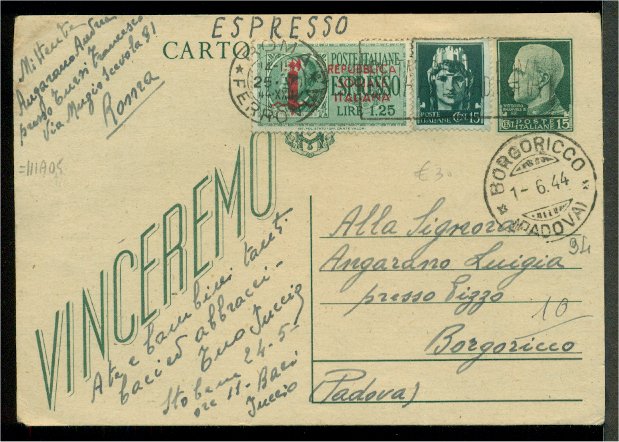 ESPRESSO
Mittente
Angarano Andrea
presso Turri Francesco
Via Muzio Scevola 81
Roma
CARTO
ROMA
FERROVIA
POSTE ITALIANE
REPUBBLICA
SOCIALE
ESPRESSO
ITALIANA
LIRE 1.25
POSTE
ITALIANE
15
POSTE
ITALIANE
15
BORGORICCO
1-6.44
(PADOVA)
€ 30
VINCEREMO
Alla Signora
Angarano Luigia
presso Pizzo
Borgoricco
(Padova)
10
A te e bambini tanti
baci ed abbracci -
Tuo Tuccio
Sto bene 24-5-
ore 11- Baci
Tuccio